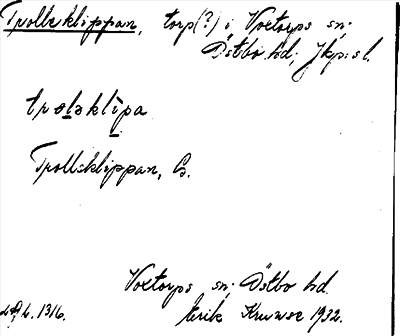 Trolleklippan, torp(?) i Voxtorps sn;
Östbo hd. Jkp:s l.
trolǝklipa
Trollsklippan, G.
Voxtorps sn; Östbo hd.
1316. Erik Kruuse 1932.